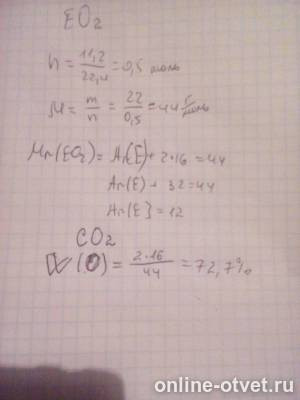 EO₂
n = 11,2/22,4 = 0,5 моль
M = m/n = 22/0,5 = 44 г/моль
Mr(EO₂) = Ar(E) + 2·16 = 44
Ar(E) + 32 = 44
Ar(E) = 12
CO₂
W(O) = 2·16/44 = 72,7%
online-otvet.ru